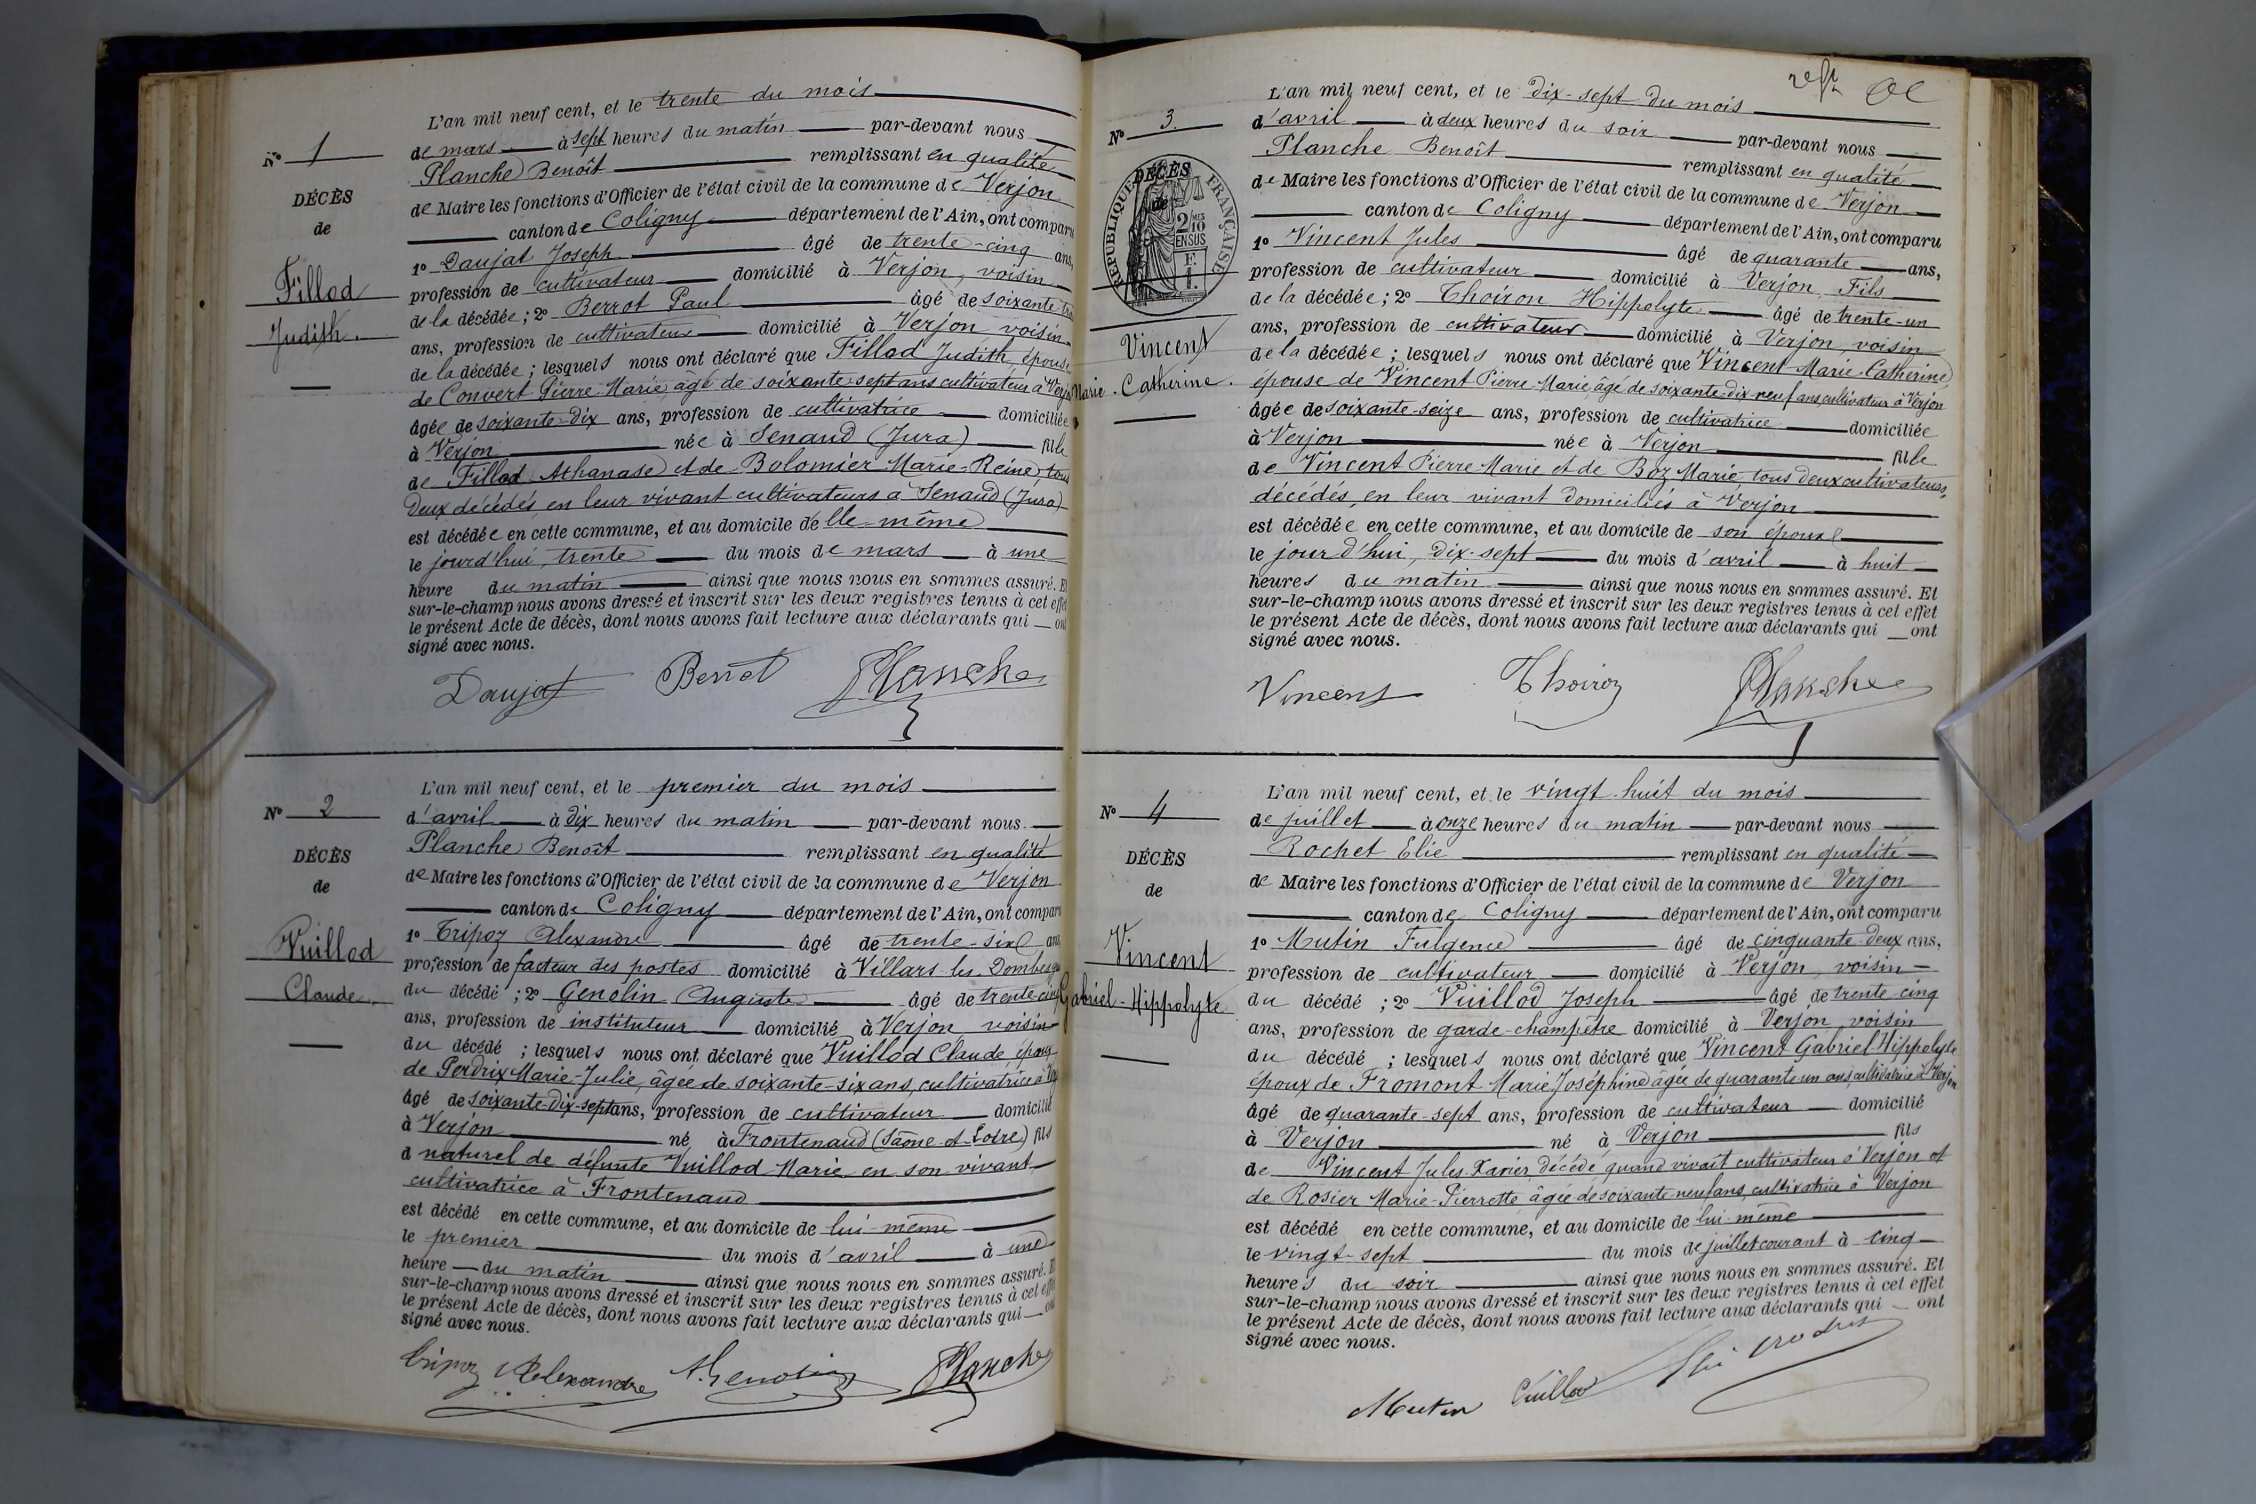 L'an mil neuf cent, et le trente du mois
Nº 1
de mars à sept heures du matin par-devant nous
Planche Benoît remplissant en qualité
DÉCÈS
de Maire les fonctions d'Officier de l'état civil de la commune de Verjon
de
canton de Coligny département de l'Ain, ont comparu
1º Daujat Joseph âgé de trente-cinq ans,
Fillod
profession de cultivateur domicilié à Verjon, voisin
de la décédée; 2º Berrot Paul âgé de soixante-
Judith.
ans, profession de cultivateur domicilié à Verjon voisin
de la décédée; lesquels nous ont déclaré que Fillod Judith, épouse
de Convert Pierre-Marie, âgé de soixante-sept ans cultivateur à Verjon
âgée de soixante-dix ans, profession de cultivatrice domiciliée
à Verjon née à Senaud (Jura) fille
de Fillod Athanase et de Bolomier Marie-Reine, tous
deux décédés en leur vivant cultivateurs à Senaud (Jura)
est décédée en cette commune, et au domicile d'elle-même
le jourd'hui, trente du mois de mars à une
heure du matin ainsi que nous nous en sommes assuré. Et
sur-le-champ nous avons dressé et inscrit sur les deux registres tenus à cet effet
le présent Acte de décès, dont nous avons fait lecture aux déclarants qui ont
signé avec nous.
Daujat Berrot Planche
L'an mil neuf cent, et le premier du mois
Nº 2
d'avril à dix heures du matin par-devant nous
Planche Benoît remplissant en qualité
DÉCÈS
de Maire les fonctions d'Officier de l'état civil de la commune de Verjon
de
canton de Coligny département de l'Ain, ont comparu
1º Tripoz Alexandre âgé de trente-six ans
Vuillod
profession de facteur des postes domicilié à Villars les Dombes
Claude.
du décédé; 2º Genolin Auguste âgé de trente-cinq
ans, profession de instituteur domicilié à Verjon voisin
du décédé; lesquels nous ont déclaré que Vuillod Claude, époux
de Perdrix Marie-Julie, âgée de soixante-six ans, cultivatrice à
âgé de soixante-dix-sept ans, profession de cultivateur domicilié
à Verjon né à Frontenaud (Saône-et-Loire) fils
naturel de défunte Vuillod Marie en son vivant
cultivatrice à Frontenaud
est décédé en cette commune, et au domicile de lui-même
le premier du mois d'avril à une
heure du matin ainsi que nous nous en sommes assuré. Et
sur-le-champ nous avons dressé et inscrit sur les deux registres tenus à cet effet
le présent Acte de décès, dont nous avons fait lecture aux déclarants qui ont
signé avec nous.
Tripoz Alexandre A. Genolin Planche
L'an mil neuf cent, et le dix-sept du mois
Nº 3.
d'avril à deux heures du soir par-devant nous
Planche Benoît remplissant en qualité
DÉCÈS
de
RÉPUBLIQUE FRANÇAISE
2/10 EN SUS
F. 1.
de Maire les fonctions d'Officier de l'état civil de la commune de Verjon
canton de Coligny département de l'Ain, ont comparu
1º Vincent Jules âgé de quarante ans,
profession de cultivateur domicilié à Verjon, Fils
de la décédée; 2º Thoiron Hippolyte âgé de trente-un
ans, profession de cultivateur domicilié à Verjon, voisin
Vincent
de la décédée; lesquels nous ont déclaré que Vincent Marie-Catherine,
Marie-Catherine.
épouse de Vincent Pierre Marie, âgé de soixante-dix-neuf ans, cultivateur à Verjon
âgée de soixante-seize ans, profession de cultivatrice domiciliée
à Verjon née à Verjon fille
de Vincent Pierre Marie et de Boz Marie, tous deux cultivateurs,
décédés, en leur vivant domiciliés à Verjon
est décédée en cette commune, et au domicile de son époux
le jourd'hui, dix-sept du mois d'avril à huit
heures du matin ainsi que nous nous en sommes assuré. Et
sur-le-champ nous avons dressé et inscrit sur les deux registres tenus à cet effet
le présent Acte de décès, dont nous avons fait lecture aux déclarants qui ont
signé avec nous.
Vincent Planche
L'an mil neuf cent, et le vingt-huit du mois
Nº 4
de juillet à onze heures du matin par-devant nous
Rochet Elie remplissant en qualité
DÉCÈS
de Maire les fonctions d'Officier de l'état civil de la commune de Verjon
de
canton de Coligny département de l'Ain, ont comparu
1º Mutin Fulgence âgé de cinquante-deux ans,
Vincent
profession de cultivateur domicilié à Verjon, voisin
Gabriel-Hippolyte
du décédé; 2º Vuillod Joseph âgé de trente cinq
ans, profession de garde-champêtre domicilié à Verjon, voisin
du décédé; lesquels nous ont déclaré que Vincent Gabriel Hippolyte
époux de Fromont Marie Joséphine âgée de quarante un ans cultivatrice à Verjon
âgé de quarante-sept ans, profession de cultivateur domicilié
à Verjon né à Verjon fils
de Vincent Jules Xavier, décédé, quand vivait cultivateur à Verjon et
de Rosier Marie-Pierrette âgée de soixante-neuf ans, cultivatrice à Verjon
est décédé en cette commune, et au domicile de lui-même
le vingt-sept du mois de juillet courant à cinq
heures du soir ainsi que nous nous en sommes assuré. Et
sur-le-champ nous avons dressé et inscrit sur les deux registres tenus à cet effet
le présent Acte de décès, dont nous avons fait lecture aux déclarants qui ont
signé avec nous.
Mutin Vuillod